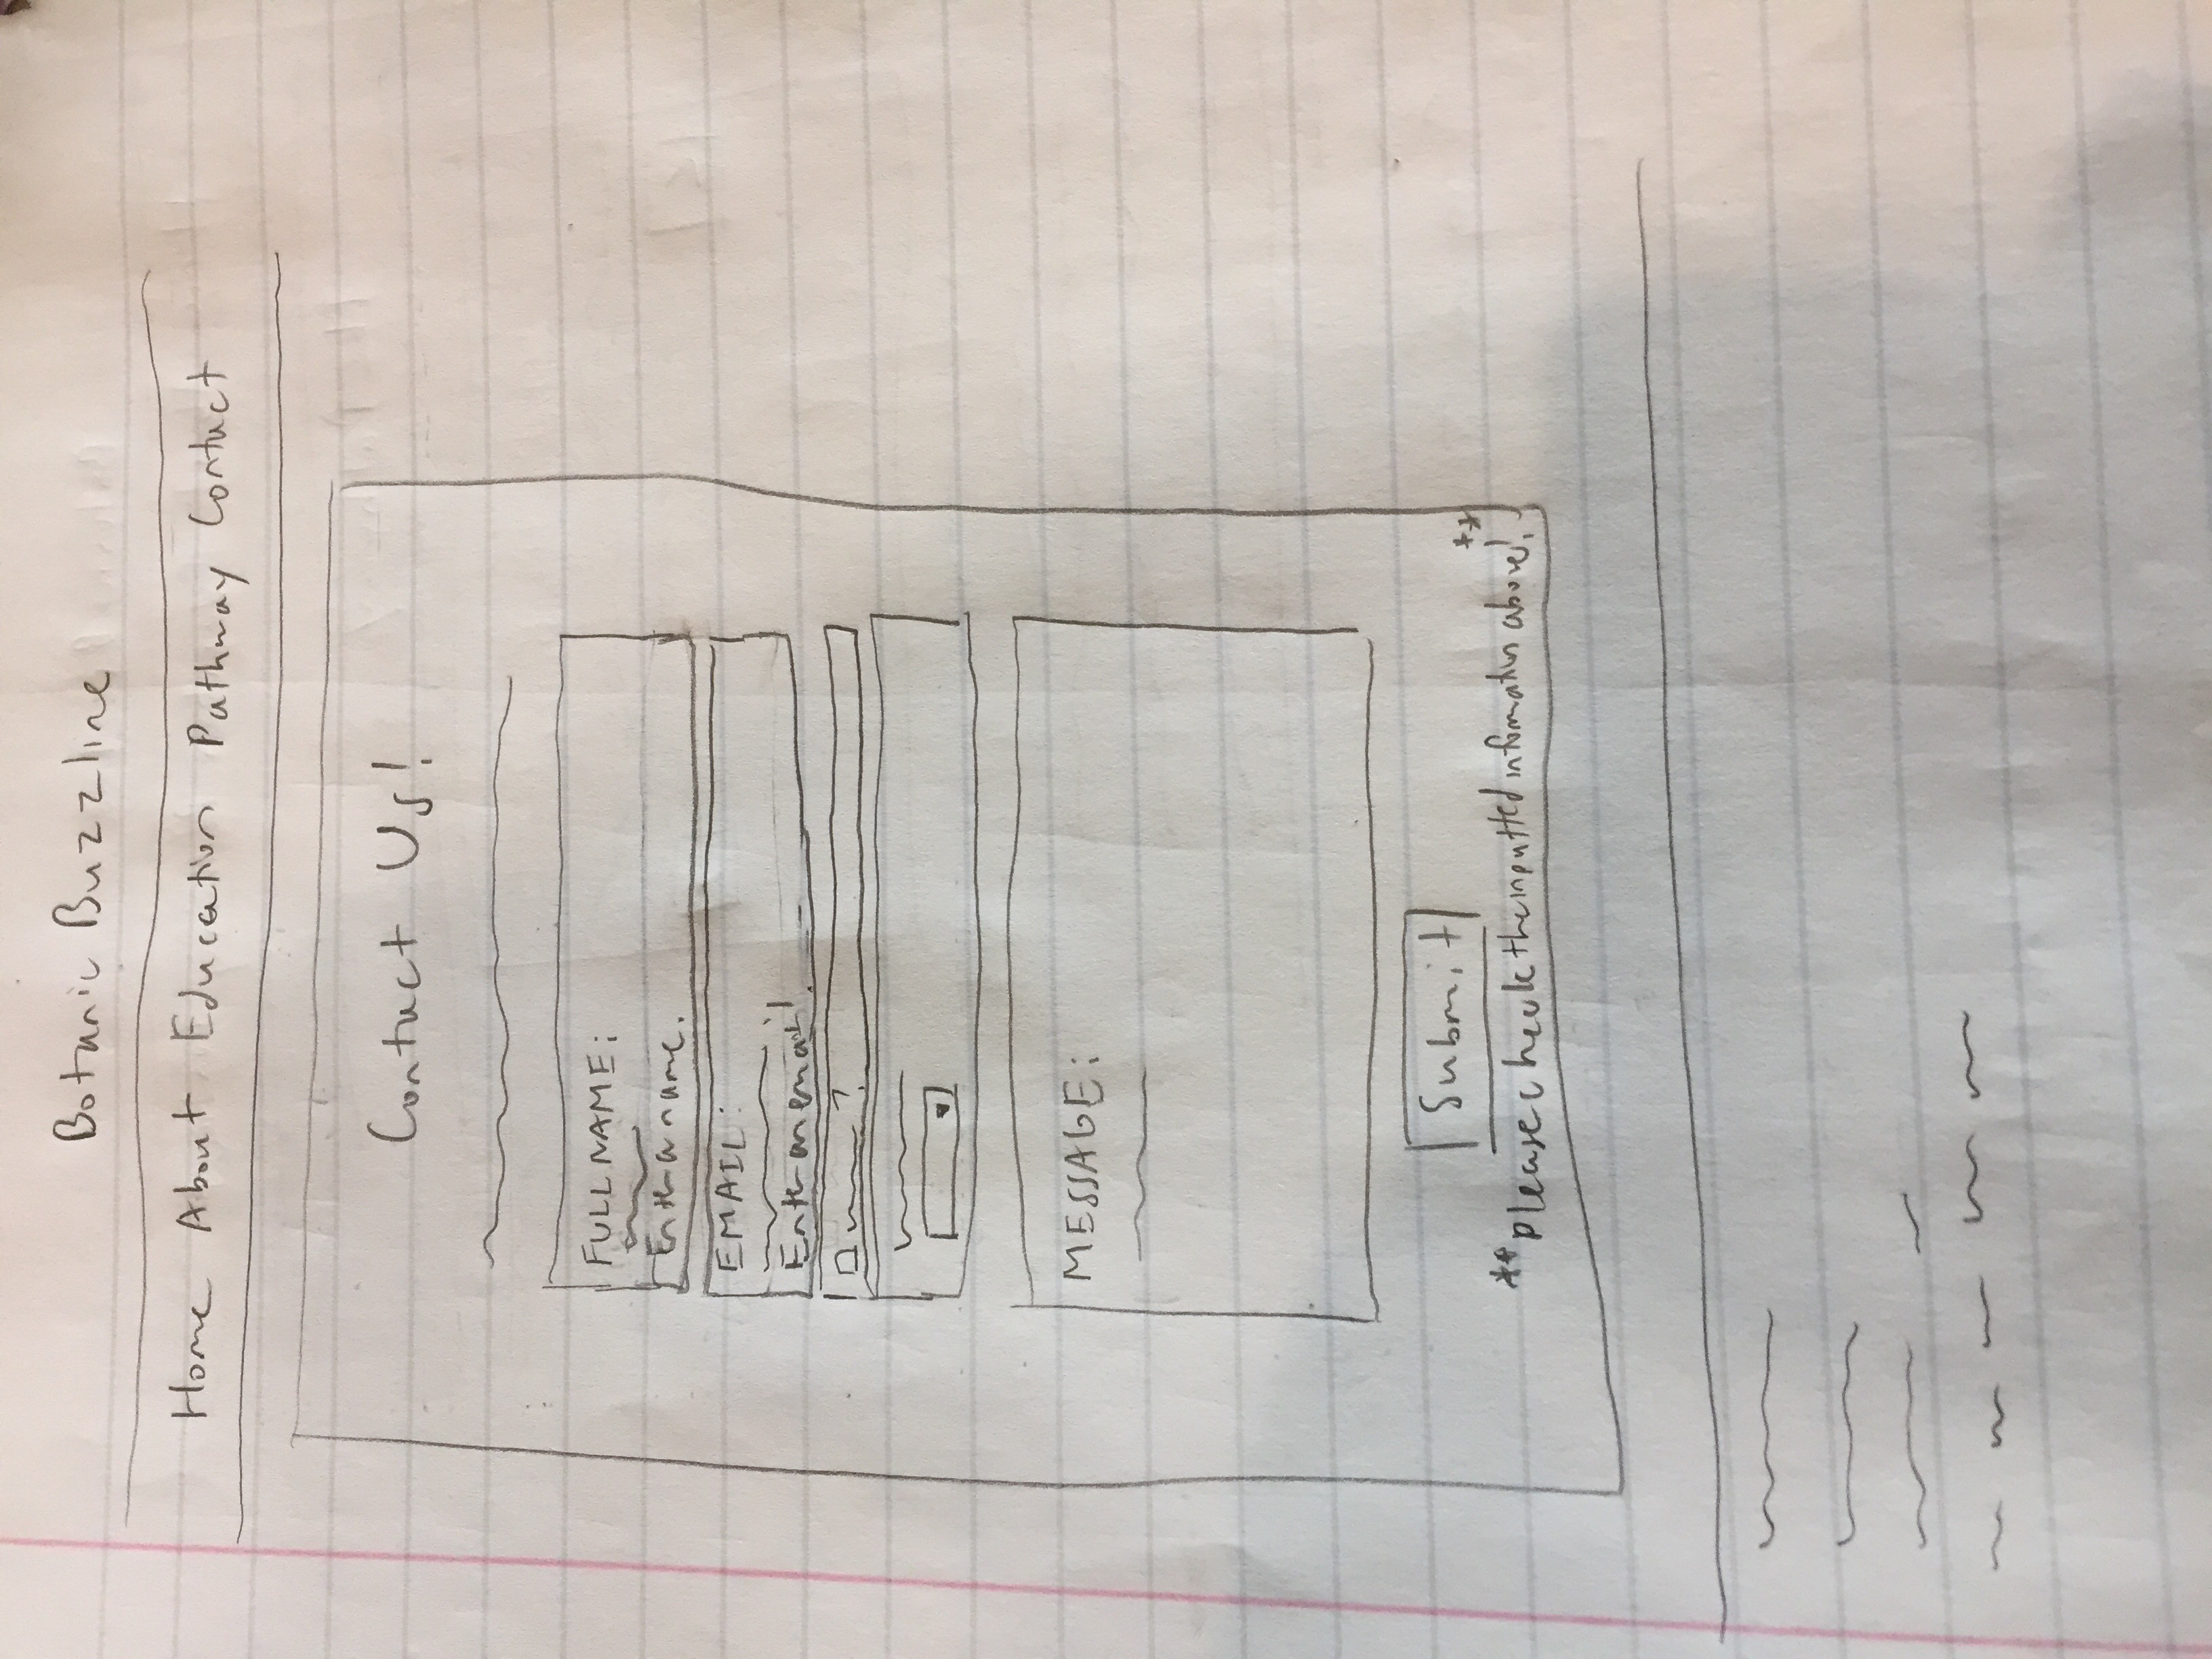 Botanic Buzzline
Home About Education Pathway Contact
Contact Us!
FULL NAME:
Enter a name.
EMAIL:
Enter an email!
MESSAGE:
Submit
**please check the inputted information above!**